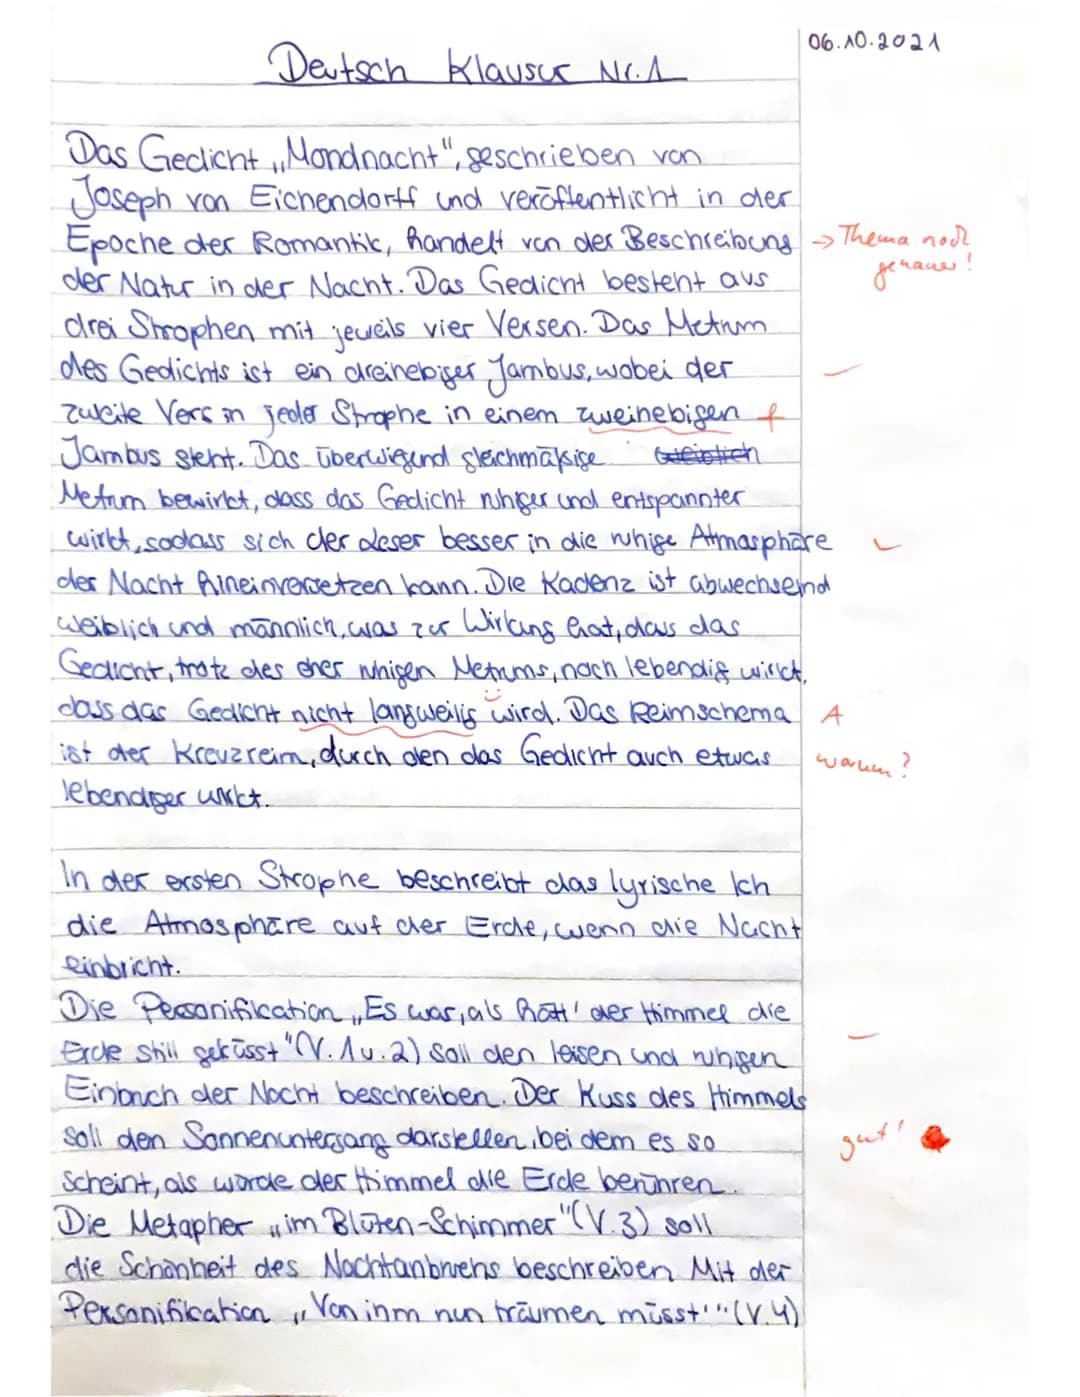 06.10.2021
Deutsch Klausur Nr.1
Das Gedicht „Mondnacht", geschrieben von
Joseph von Eichendorff und veröffentlicht in der
Epoche der Romantik, handelt von der Beschreibung
→ Thema noch
genauer!
der Natur in der Nacht. Das Gedicht besteht aus
drei Strophen mit jeweils vier Versen. Das Metrum
des Gedichts ist ein dreihebiger Jambus, wobei der
zweite Vers in jeder Strophe in einem zweihebigen f
Jambus steht. Das überwiegend gleichmäßige
Metrum bewirkt, dass das Gedicht ruhiger und entspannter
wirkt, sodass sich der Leser besser in die ruhige Atmosphäre
der Nacht hineinversetzen kann. Die Kadenz ist abwechselnd
weiblich und männlich, was zur Wirkung hat, dass das
Gedicht, trotz des eher ruhigen Metrums, noch lebendig wirkt,
dass das Gedicht nicht langweilig wird. Das Reimschema A
ist der Kreuzreim, durch den das Gedicht auch etwas
warum?
lebendiger wirkt.
In der ersten Strophe beschreibt das lyrische Ich
die Atmosphäre auf der Erde, wenn die Nacht
einbricht.
Die Personifikation „Es war, als hätt' der Himmel die
Erde still geküsst" (V. 1 u. 2) soll den leisen und ruhigen
Einbruch der Nacht beschreiben. Der Kuss des Himmels
soll den Sonnenuntergang darstellen, bei dem es so
gut!
scheint, als würde der Himmel die Erde berühren.
Die Metapher „im Blüten-Schimmer" (V.3) soll
die Schönheit des Nachtanbruchs beschreiben. Mit der
Personifikation „Von ihm nun träumen müsst'" (V.4)